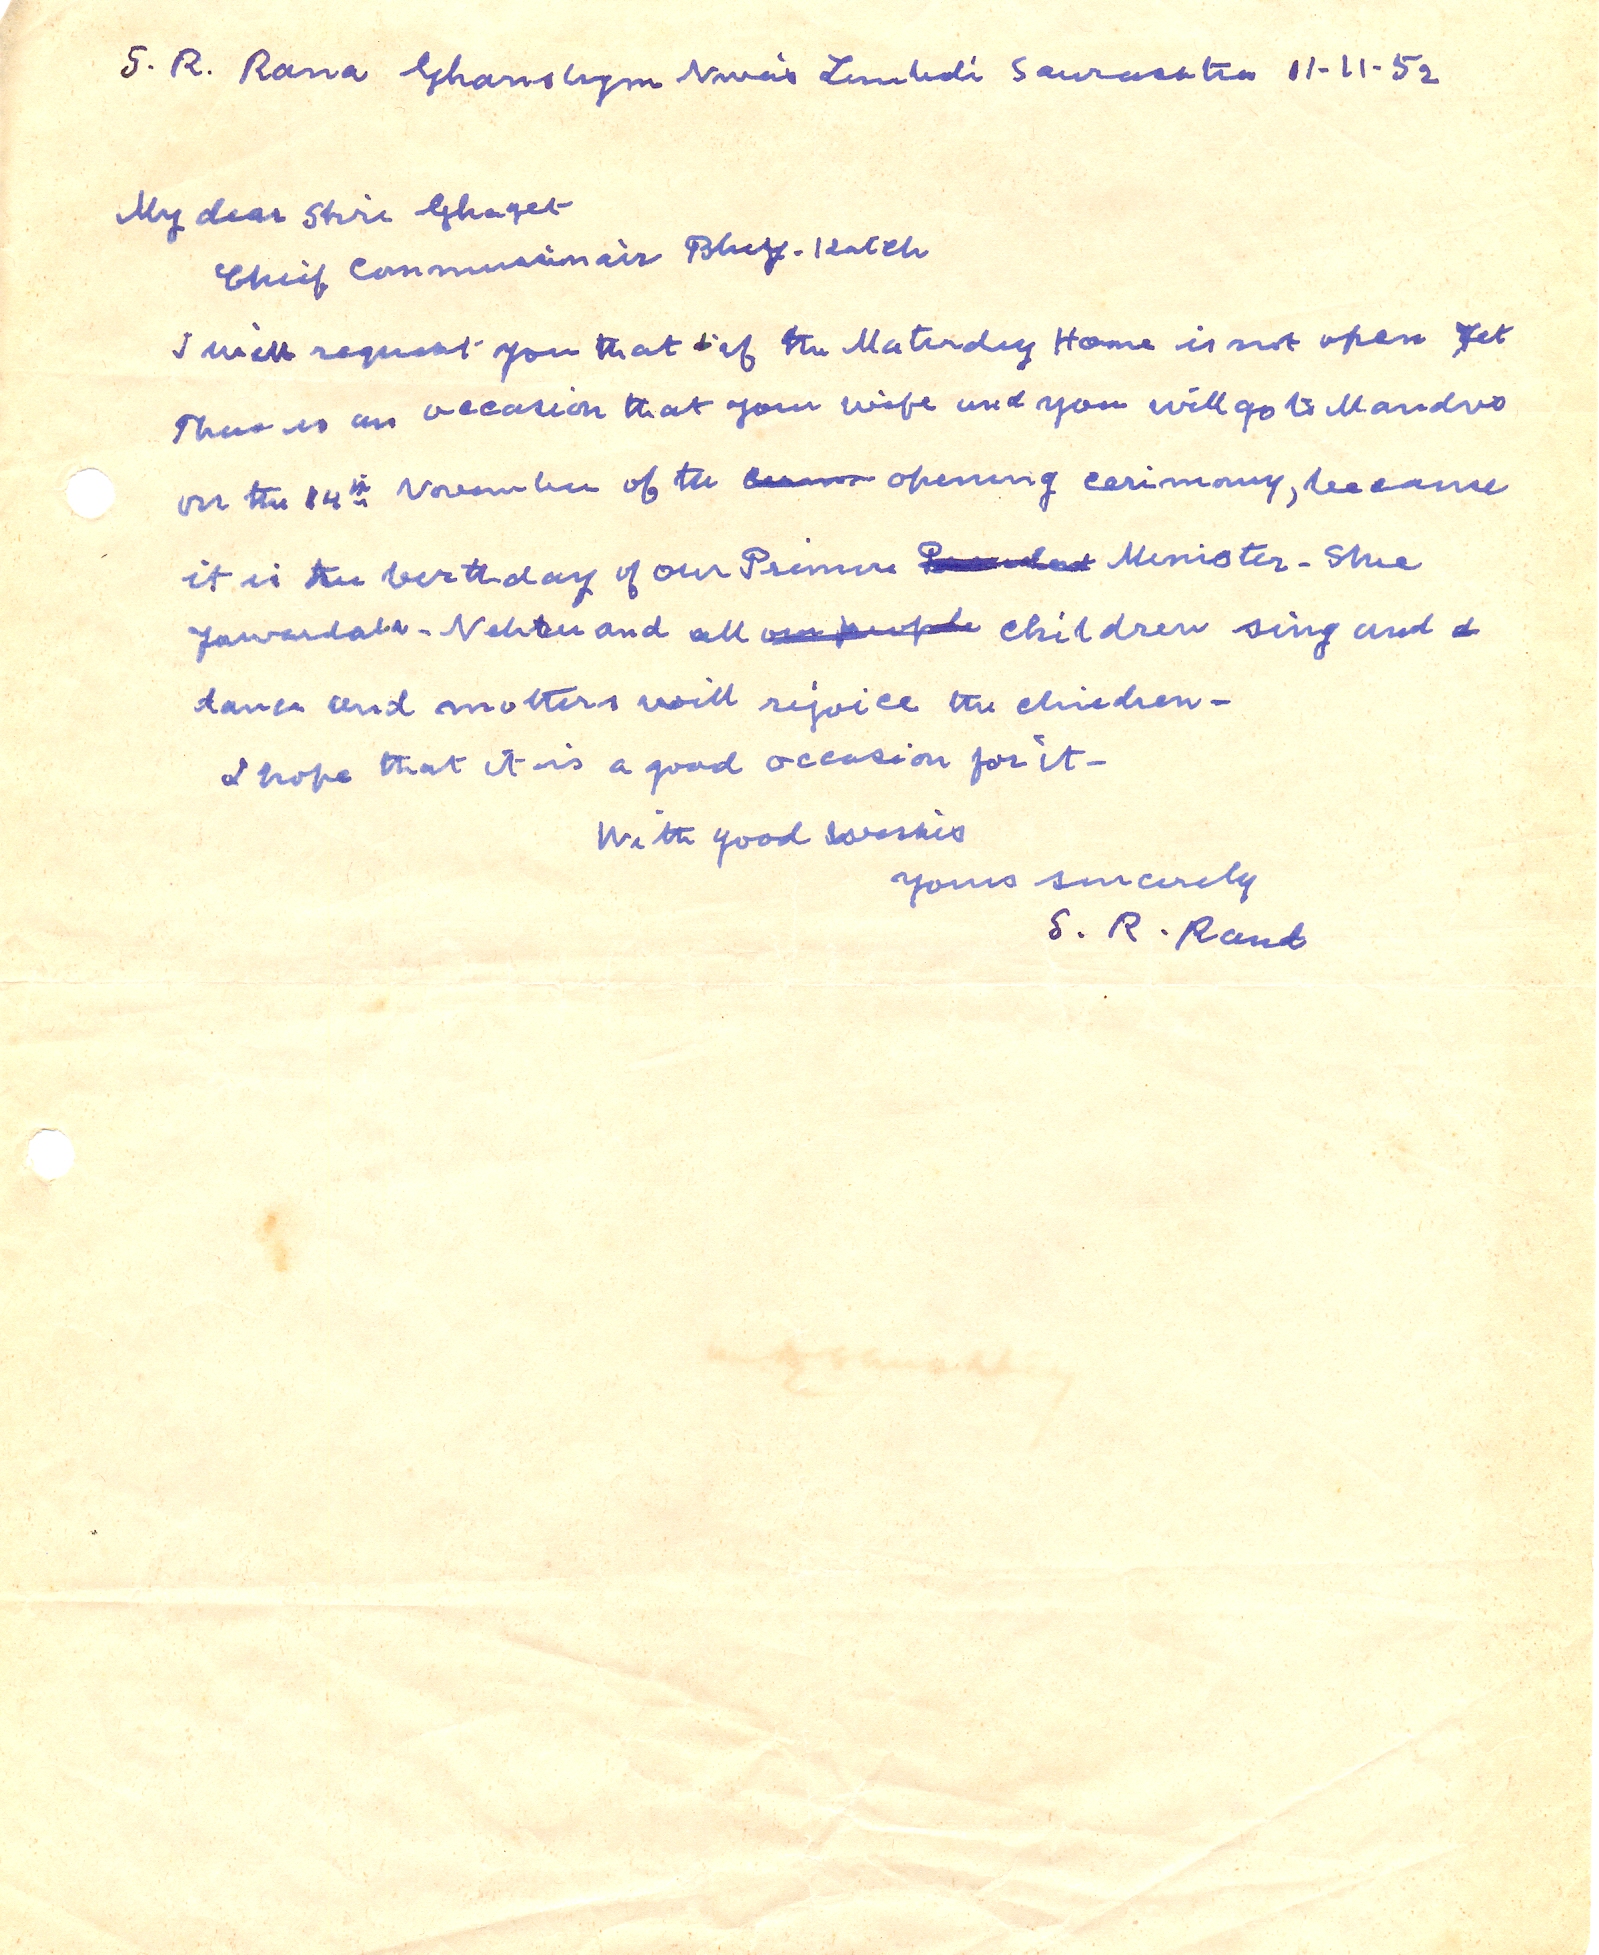 S. R. Rana Ghanshyam Nivas Limbdi Saurashtra 11-11-52
My dear Shri Ghaget
Chief Commissionair Bhuj-Kutch
I will request you that if the Maternity Home is not open yet
There is an occasion that your wife and you will go to Mandvo
on the 14th November of the opening cerimony, because
it is the birthday of our Primire Menister - Shree
Jawardalal - Nehru and all our people children sing and d
dance and mothers will rejoice the children -
I hope that it is a good occasion for it -
With good wishis
yours sincerely
S. R. Rana